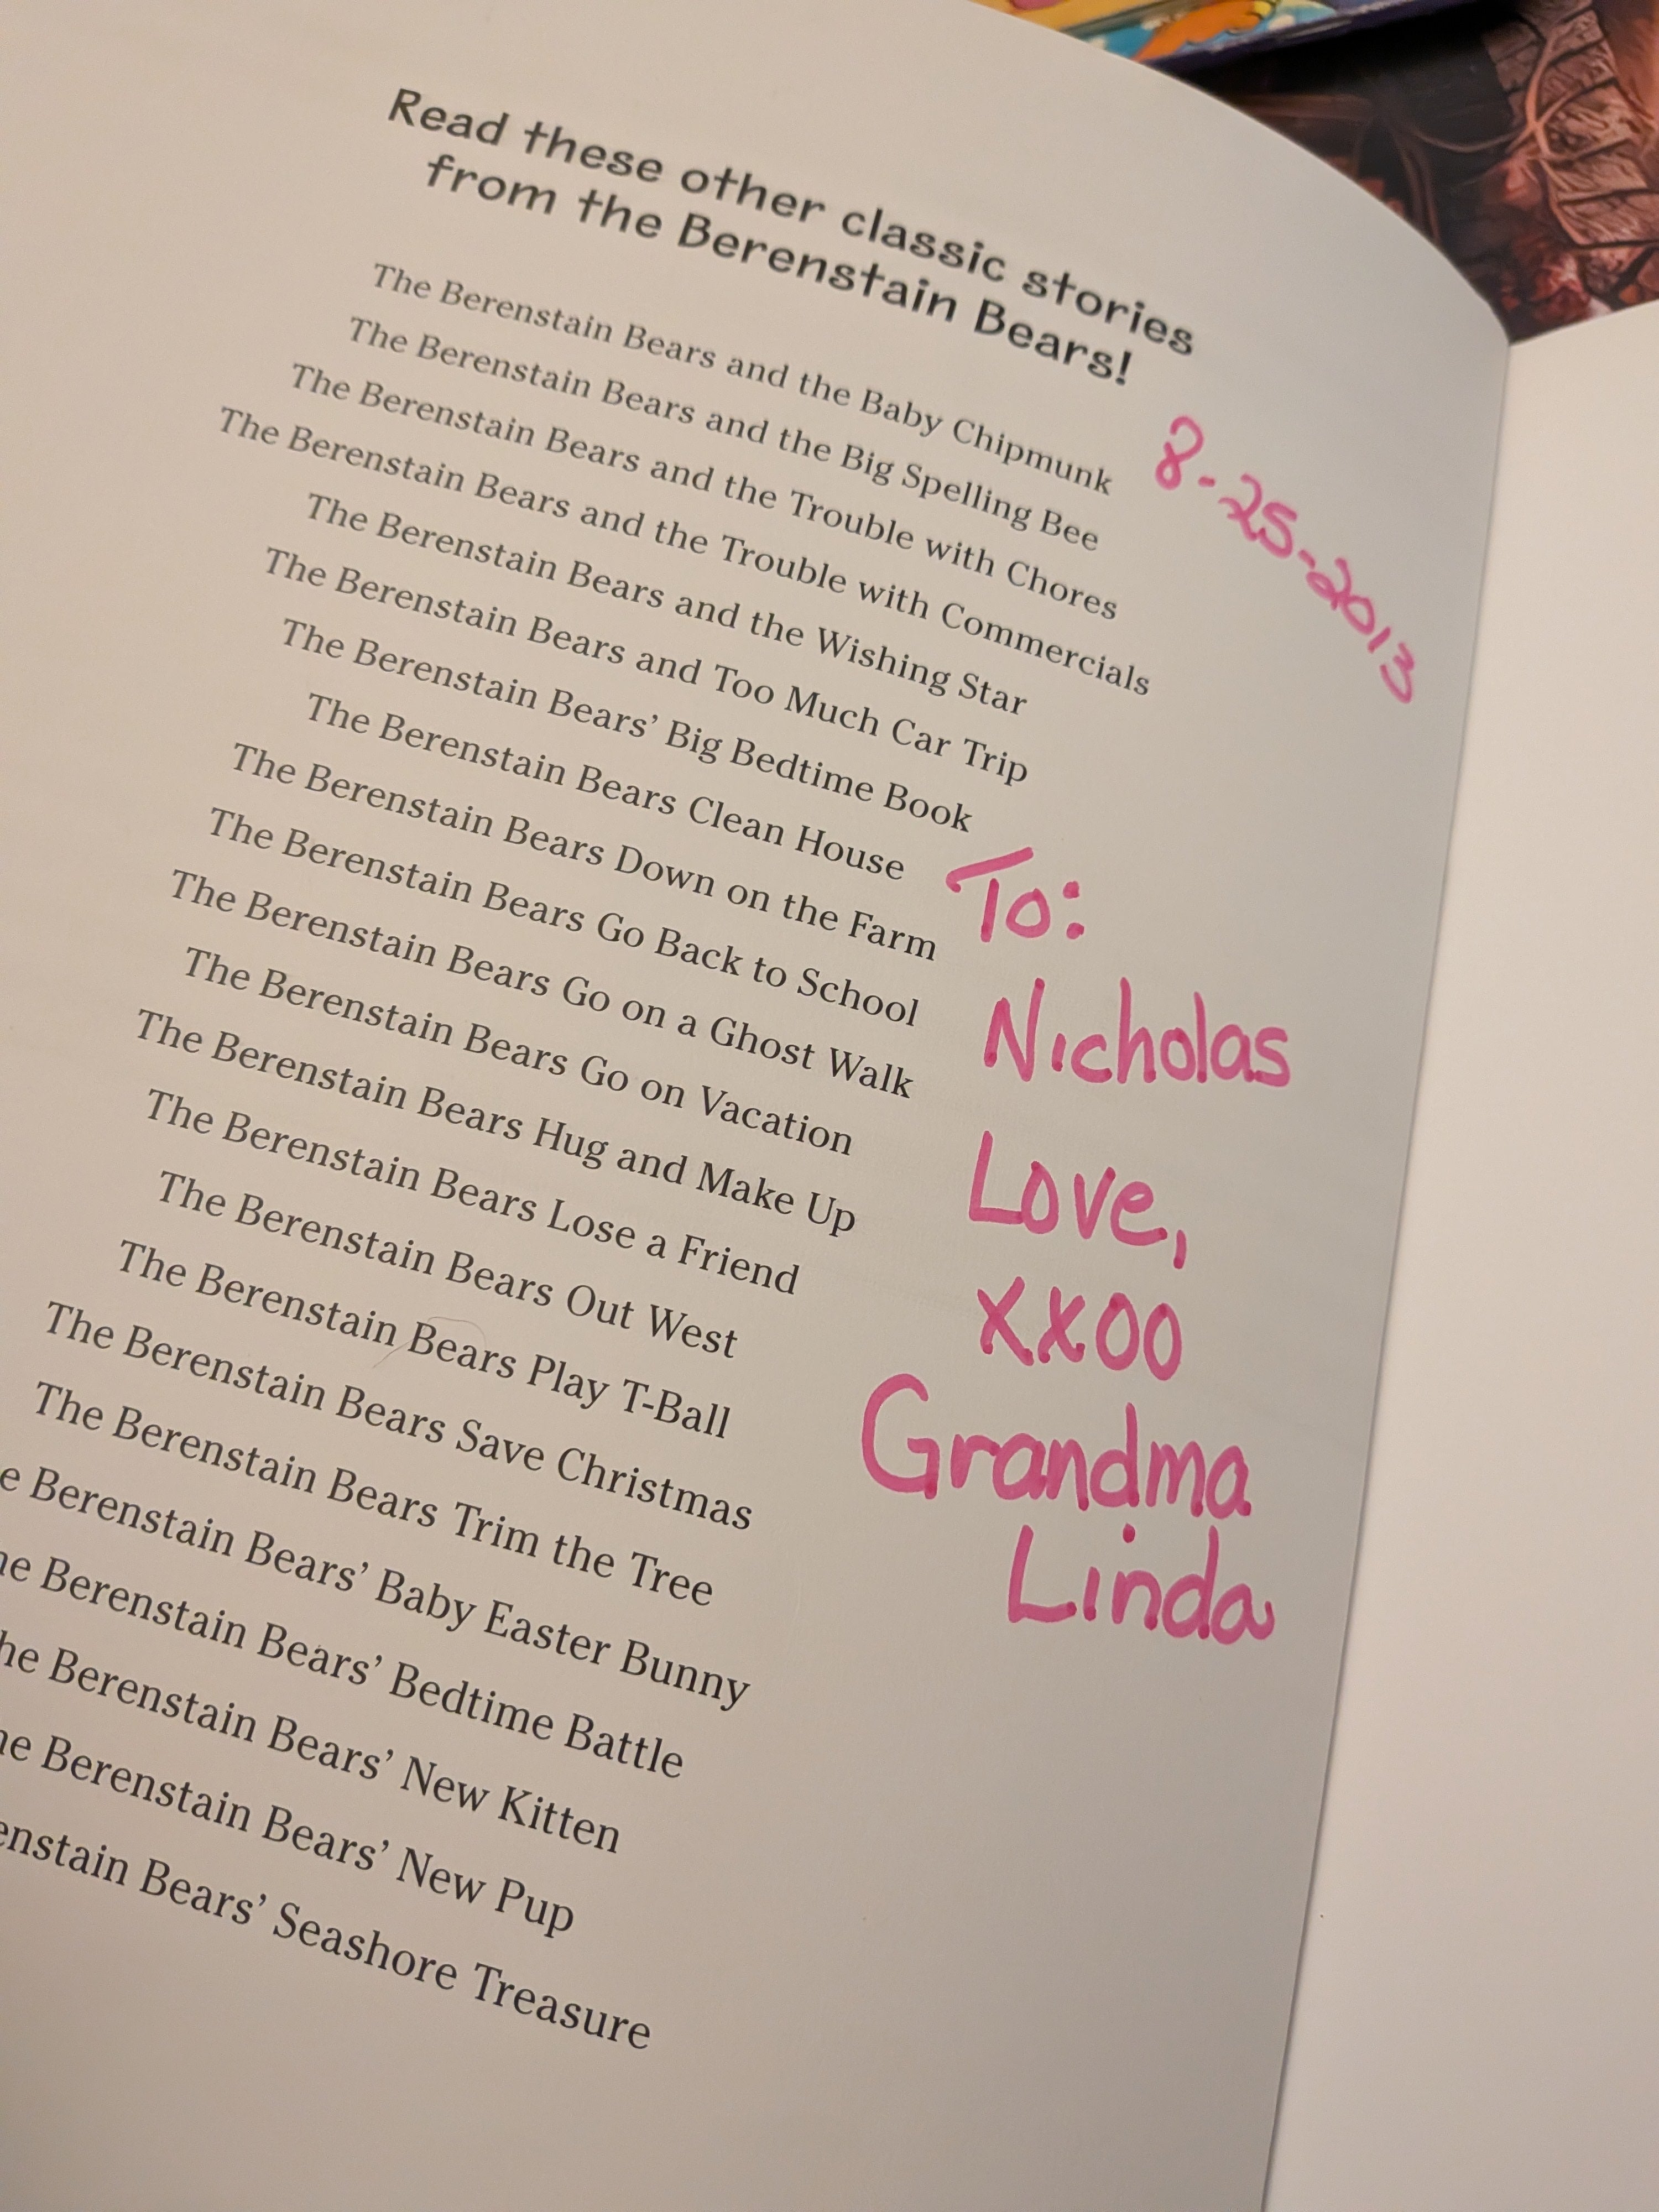 Read these other classic stories
from the Berenstain Bears!
The Berenstain Bears and the Baby Chipmunk
The Berenstain Bears and the Big Spelling Bee
The Berenstain Bears and the Trouble with Chores
The Berenstain Bears and the Trouble with Commercials
The Berenstain Bears and the Wishing Star
The Berenstain Bears and Too Much Car Trip
The Berenstain Bears’ Big Bedtime Book
The Berenstain Bears Clean House
The Berenstain Bears Down on the Farm
The Berenstain Bears Go Back to School
The Berenstain Bears Go on a Ghost Walk
The Berenstain Bears Go on Vacation
The Berenstain Bears Hug and Make Up
The Berenstain Bears Lose a Friend
The Berenstain Bears Out West
The Berenstain Bears Play T-Ball
The Berenstain Bears Save Christmas
The Berenstain Bears Trim the Tree
e Berenstain Bears’ Baby Easter Bunny
he Berenstain Bears’ Bedtime Battle
he Berenstain Bears’ New Kitten
he Berenstain Bears’ New Pup
enstain Bears’ Seashore Treasure
8-25-2013
To:
Nicholas
Love,
xxoo
Grandma
Linda